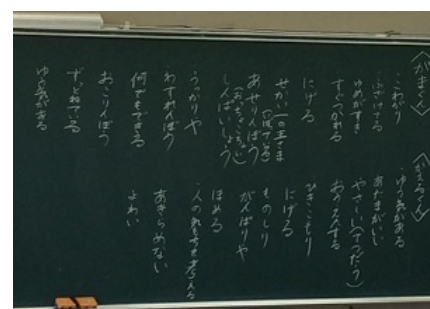 〈がまくん〉
こわがり
ふざけてる
ゆめがすき
すぐつかれる
にげる
せかい一の王さま
(いばっている)
あせんぼう
(おっちょこちょい)
しんぱいしょう
うっかりや
わすれんぼう
何でもできる
おこりんぼう
ずっとねている
ゆう気がある
〈かえるくん〉
ゆう気がある
あたまがいい
やさしい(てつだう)
おうえんする
ひきこもり
にげる
ものしり
がんばりや
ほめる
人の気もちを考える
あきらめない
よわい